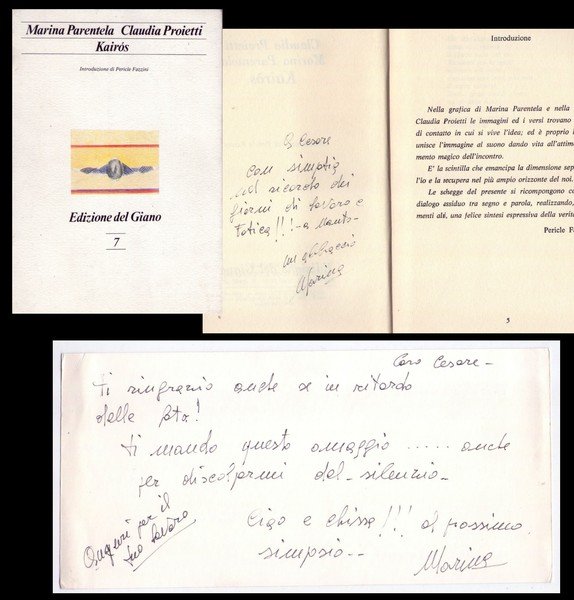 Marina Parentela Claudia Proietti
Kairós
Introduzione di Pericle Fazzini
Edizione del Giano
7
a Cesare
con simpatia
nel ricordo dei
giorni di lavoro e
fatica!!!
un abbraccio
Marina
Introduzione
Nella grafica di Marina Parentela e nella
Claudia Proietti le immagini ed i versi trovano
di contatto in cui si vive l'idea; ed è proprio
unisce l'immagine al suono dando vita all'attim
mento magico dell'incontro.
E' la scintilla che emancipa la dimensione sep
l'io e la recupera nel più ampio orizzonte del noi.
Le schegge del presente si ricompongono co
dialogo assiduo tra segno e parola, realizzando,
menti alti, una felice sintesi espressiva della verit
Pericle Fa
5
Caro Cesare -
ti ringrazio anche se in ritardo
delle foto!
ti mando questo omaggio ..... anche
per discolparmi del silenzio -
Ciao e chissà!!! al prossimo
simposio..
Marina
Auguri per il
tuo lavoro